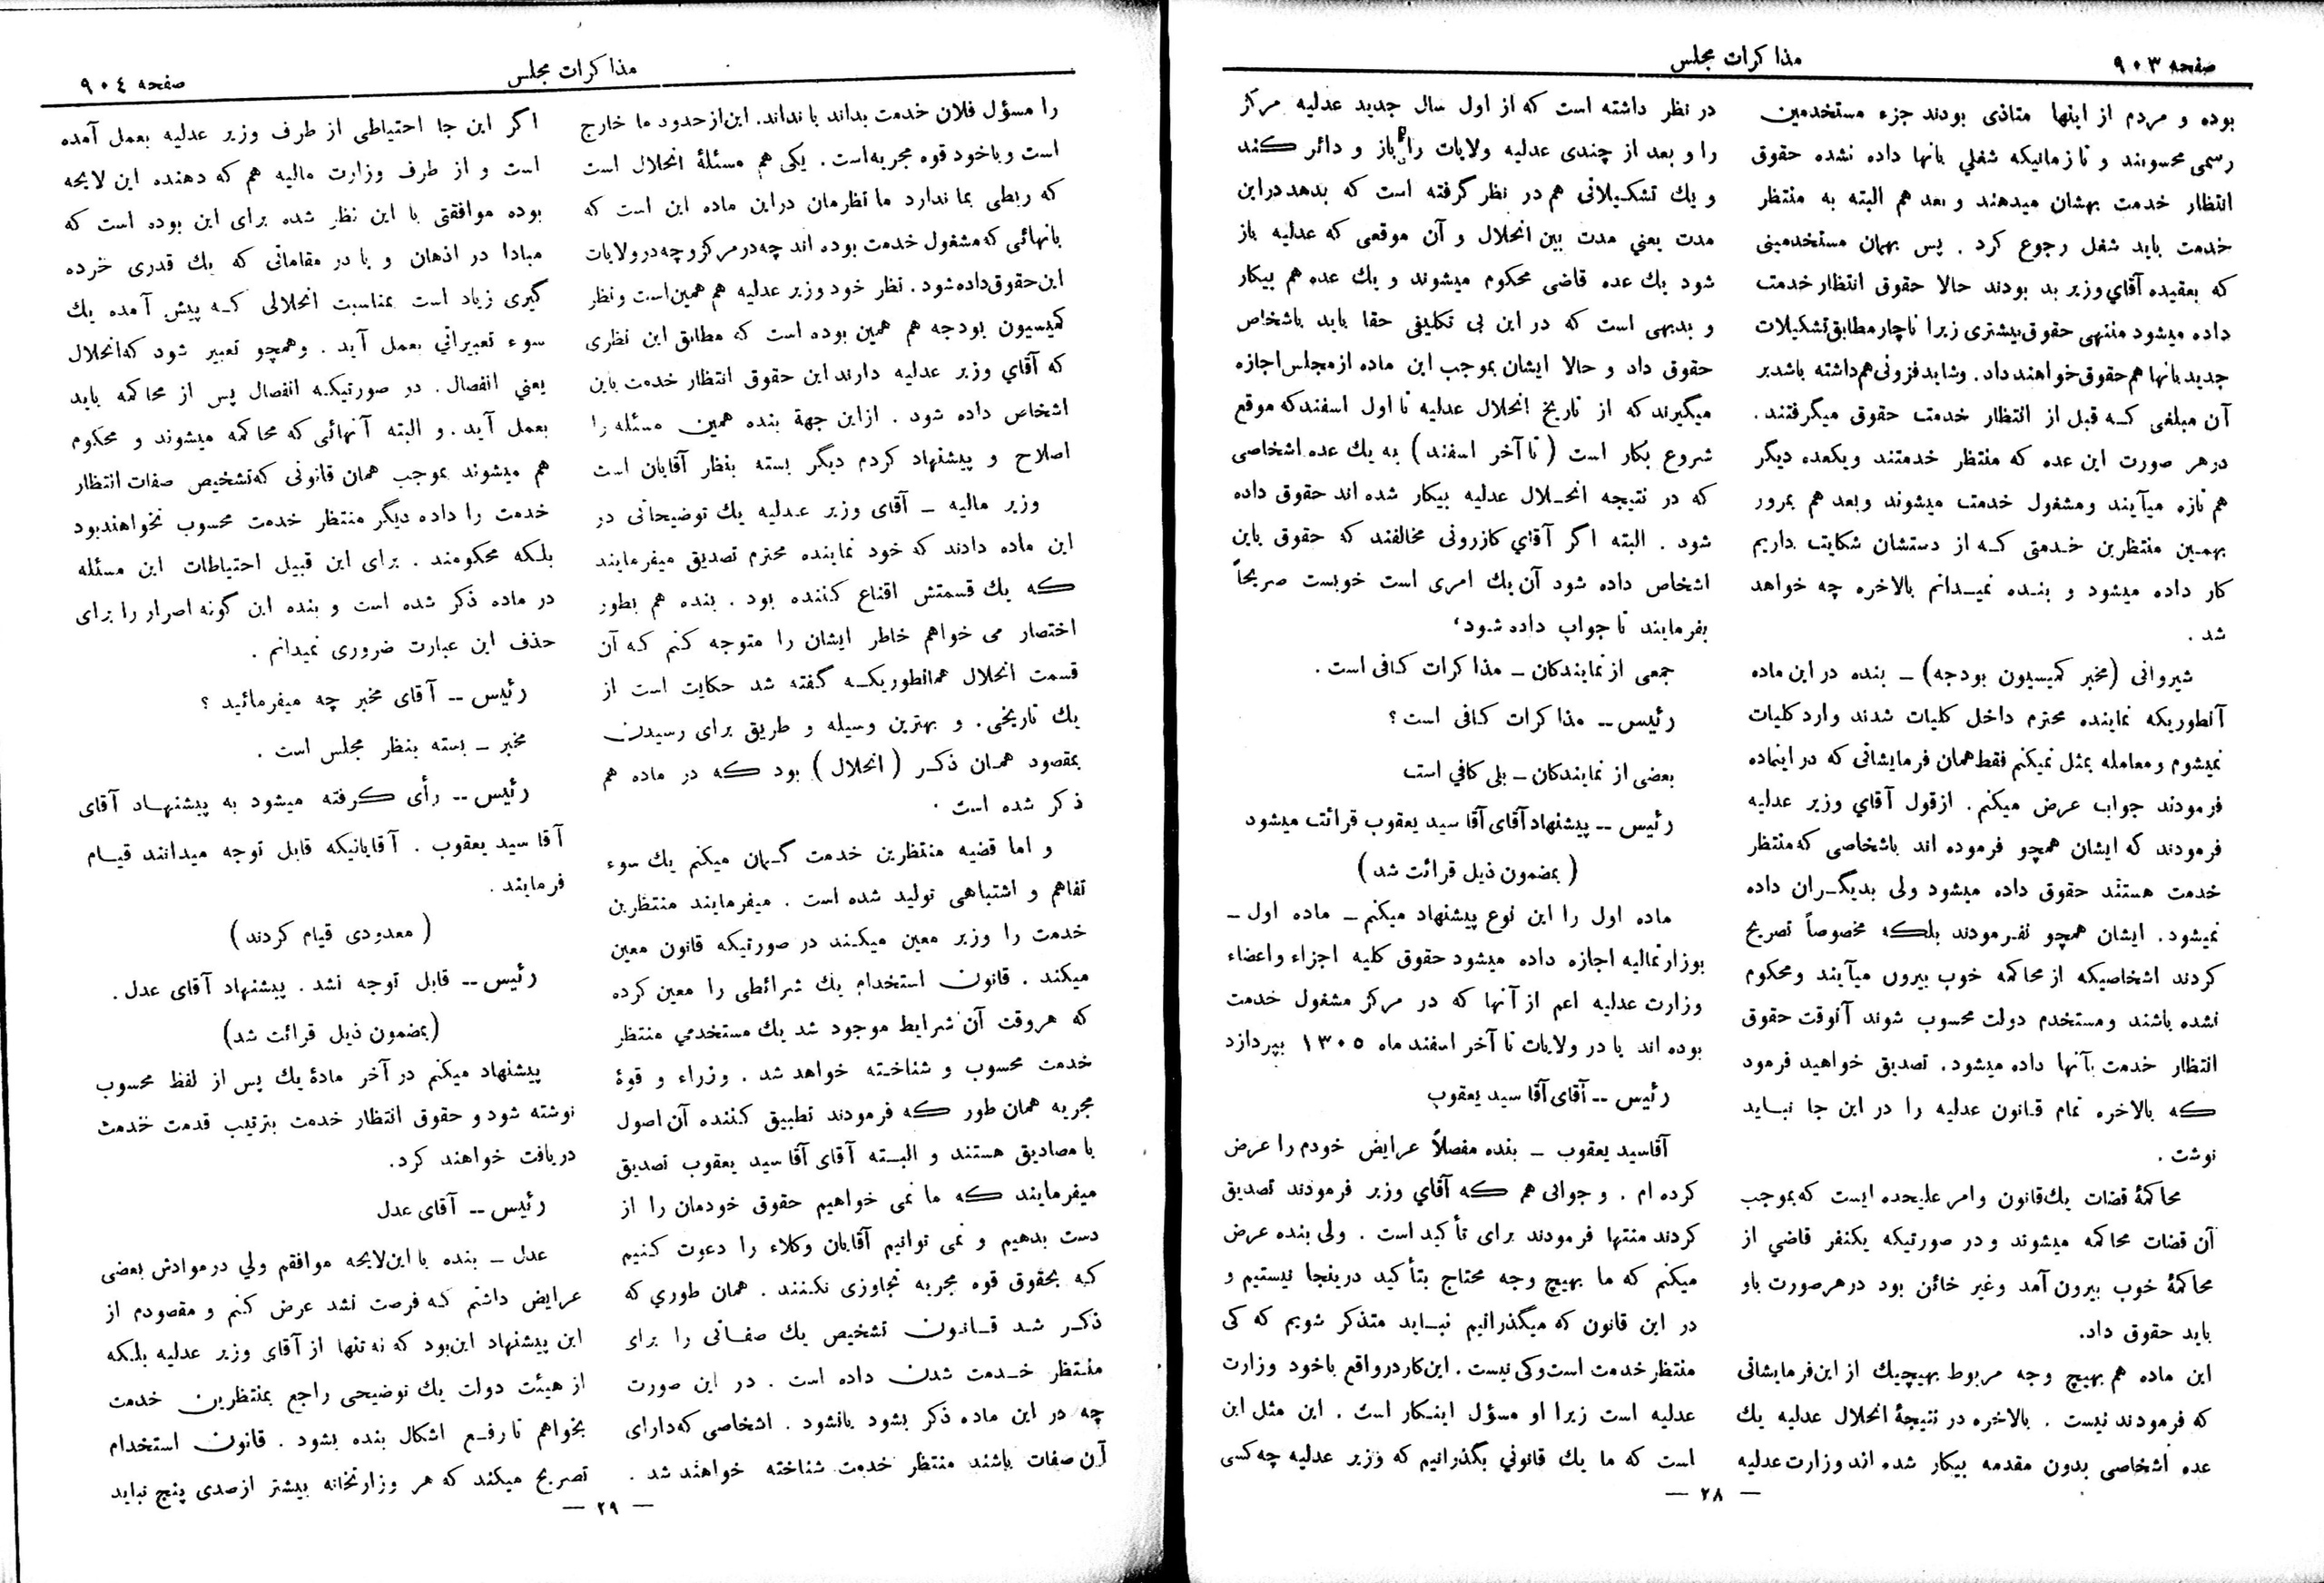 صفحه ۹۰۳
مذاکرات مجلس
بوده و مردم از اینها متاذی بودند جزء مستخدمین
رسمی محسوبند و تا زمانیکه شغلي بانها داده نشده حقوق
انتظار خدمت بهشان میدهند و بعد هم البته به منتظر
خدمت باید شغل رجوع کرد . پس بهمان مستخدمینی
که بعقیده آقاي وزیر بد بودند حالا حقوق انتظار خدمت
داده میشود منتهی حقوق بیشتری زیرا ناچار مطابق تشکیلات
جدید بانها هم حقوق خواهند داد . وشاید فزونی هم داشته باشد بر
آن مبلغی که قبل از انتظار خدمت حقوق میگرفتند .
در هر صورت این عده که منتظر خدمتند ویکعده دیگر
هم تازه میآیند ومشغول خدمت میشوند وبعد هم بمرور
بهمین منتظرین خدمتی که از دستشان شکایت داریم
کار داده میشود و بنده نمیدانم بالاخره چه خواهد
شد .
شیروانی (مخبر کمیسیون بودجه) ـ بنده در این ماده
آنطوریکه نماینده محترم داخل کلیات شدند وارد کلیات
نمیشوم ومعامله بمثل نمیکنم فقط همان فرمایشاتی که در اینماده
فرمودند جواب عرض میکنم . از قول آقاي وزیر عدلیه
فرمودند که ایشان همچو فرموده اند باشخاصی که منتظر
خدمت هستند حقوق داده میشود ولی بدیگران داده
نمیشود . ایشان همچو نفرمودند بلکه مخصوصاً تصریح
کردند اشخاصیکه از محاکمه خوب بیرون میآیند ومحکوم
نشده باشند ومستخدم دولت محسوب شوند آنوقت حقوق
انتظار خدمت بآنها داده میشود . تصدیق خواهید فرمود
که بالاخره تمام قانون عدلیه را در این جا نباید
نوشت .
محاکمهٔ قضات یك قانون وامر علیحده ایست که بموجب
آن قضات محاکمه میشوند ودر صورتیکه یکنفر قاضي از
محاکمهٔ خوب بیرون آمد وغیر خائن بود در هر صورت باو
باید حقوق داد.
این ماده هم بهیچ وجه مربوط بهیچیك از این فرمایشاتی
که فرمودند نیست . بالاخره در نتیجهٔ انحلال عدلیه یك
عده اشخاصی بدون مقدمه بیکار شده اند وزارت عدلیه
در نظر داشته است که از اول سال جدید عدلیه مرکز
را و بعد از چندی عدلیه ولایات را باز و دائر کند
و یك تشکیلاتی هم در نظر گرفته است که بدهد در این
مدت یعني مدت بین انحلال و آن موقعی که عدلیه باز
شود یك عده قاضی محکوم میشوند و یك عده هم بیکار
و بدیهی است که در این بی تکلیفی حقا باید باشخاص
حقوق داد و حالا ایشان بموجب این ماده از مجلس اجازه
میگیرند که از تاریخ انحلال عدلیه تا اول اسفند که موقع
شروع بکار است ( تا آخر اسفند ) به یك عده اشخاصی
که در نتیجه انحلال عدلیه بیکار شده اند حقوق داده
شود . البته اگر آقاي کازرونی مخالفند که حقوق باین
اشخاص داده شود آن یك امری است خوبست صریحاً
بفرمایند تا جواب داده شود،
جمعی از نمایندکان ـ مذاکرات کافی است .
رئیس ــ مذاکرات کافی است ؟
بعضی از نمایندکان ـ بلی کافي است
رئیس ــ پیشنهاد آقای آقا سید یعقوب قرائت میشود
( بمضمون ذیل قرائت شد )
ماده اول را این نوع پیشنهاد میکنم ـ ماده اول ـ
بوزارتمالیه اجازه داده میشود حقوق کلیه اجزاء واعضاء
وزارت عدلیه اعم از آنها که در مرکز مشغول خدمت
بوده اند یا در ولایات تا آخر اسفند ماه ۱۳۰۵ بپردازد
رئیس ــ آقای آقا سید یعقوب
آقاسید یعقوب ـ بنده مفصلاً عرایض خودم را عرض
کرده ام . و جوابی هم که آقاي وزیر فرمودند تصدیق
کردند منتها فرمودند برای تأکید است . ولی بنده عرض
میکنم که ما بهیچ وجه محتاج بتأکید درینجا نیستیم و
در این قانون که میگذرانیم نباید متذکر شویم که کی
منتظر خدمت است وکی نیست . این کار در واقع با خود وزارت
عدلیه است زیرا او مسؤل اینکار است . این مثل این
است که ما یك قانوني بگذرانیم که وزیر عدلیه چه کسی
— ۲۸ —
مذاکرات مجلس
صفحه ۹۰۴
را مسؤل فلان خدمت بداند یا نداند . این از حدود ما خارج
است و با خود قوه مجریه است . یکی هم مسئلهٔ انحلال است
که ربطی بما ندارد ما نظرمان در این ماده این است که
بانهائی که مشغول خدمت بوده اند چه در مرکز و چه در ولایات
این حقوق داده شود . نظر خود وزیر عدلیه هم همین است و نظر
کمیسیون بودجه هم همین بوده است که مطابق این نظری
که آقاي وزیر عدلیه دارند این حقوق انتظار خدمت باین
اشخاص داده شود . از این جهة بنده همین مسئله را
اصلاح و پیشنهاد کردم دیگر بسته بنظر آقایان است
وزیر مالیه ـ آقای وزیر عدلیه یك توضیحاتی در
این ماده دادند که خود نماینده محترم تصدیق میفرمایند
که یك قسمتش اقناع کننده بود . بنده هم بطور
اختصار می خواهم خاطر ایشان را متوجه کنم که آن
قسمت انحلال همانطوریکه گفته شد حکایت است از
یك تاریخی . و بهترین وسیله و طریق برای رسیدن
بمقصود همان ذکر ( انحلال ) بود که در ماده هم
ذکر شده است .
و اما قضیه منتظرین خدمت گمان میکنم یك سوء
تفاهم و اشتباهی تولید شده است . میفرمایند منتظرین
خدمت را وزیر معین میکند در صورتیکه قانون معین
میکند . قانون استخدام یك شرائطی را معین کرده
که هر وقت آن شرایط موجود شد یك مستخدمي منتظر
خدمت محسوب و شناخته خواهد شد . وزراء و قوهٔ
مجریه همان طور که فرمودند تطبیق کننده آن اصول
با مصادیق هستند و البته آقای آقا سید یعقوب تصدیق
میفرمایند که ما نمی خواهیم حقوق خودمان را از
دست بدهیم و نمی توانیم آقایان وکلاء را دعوت کنیم
که بحقوق قوه مجریه تجاوزی نکنند . همان طوري که
ذکر شد قانون تشخیص یك صفاتی را برای
منتظر خدمت شدن داده است . در این صورت
چه در این ماده ذکر بشود یا نشود . اشخاصی که دارای
آن صفات باشند منتظر خدمت شناخته خواهند شد .
اگر این جا احتیاطی از طرف وزیر عدلیه بعمل آمده
است و از طرف وزارت مالیه هم که دهنده این لایحه
بوده موافقتی با این نظر شده برای این بوده است که
مبادا در اذهان و یا در مقاماتی که یك قدری خرده
گیری زیاد است بمناسبت انحلالی که پیش آمده یك
سوء تعبیراتي بعمل آید . و همچو تعبیر شود که انحلال
یعني انفصال . در صورتیکه انفصال پس از محاکمه باید
بعمل آید . و البته آنهائی که محاکمه میشوند و محکوم
هم میشوند بموجب همان قانونی که تشخیص صفات انتظار
خدمت را داده دیگر منتظر خدمت محسوب نخواهند بود
بلکه محکومند . برای این قبیل احتیاطات این مسئله
در ماده ذکر شده است و بنده این گونه اصرار را برای
حذف این عبارت ضروری نمیدانم .
رئیس ــ آقای مخبر چه میفرمائید ؟
مخبر ـ بسته بنظر مجلس است .
رئیس ــ رأی گرفته میشود به پیشنهاد آقای
آقا سید یعقوب . آقایانیکه قابل توجه میدانند قیام
فرمایند .
( معدودی قیام کردند )
رئیس ــ قابل توجه نشد . پیشنهاد آقای عدل .
(بمضمون ذیل قرائت شد)
پیشنهاد میکنم در آخر مادهٔ یك پس از لفظ محسوب
نوشته شود و حقوق انتظار خدمت بترتیب قدمت خدمت
دریافت خواهند کرد.
رئیس ــ آقای عدل
عدل ـ بنده با این لایحه موافقم ولي در موادش بعضی
عرایض داشتم که فرصت نشد عرض کنم و مقصودم از
این پیشنهاد این بود که نه تنها از آقای وزیر عدلیه بلکه
از هیئت دولت یك توضیحی راجع بمنتظرین خدمت
بخواهم تا رفع اشکال بنده بشود . قانون استخدام
تصریح میکند که هر وزارتخانه بیشتر از صدی پنج نباید
— ۲۹ —